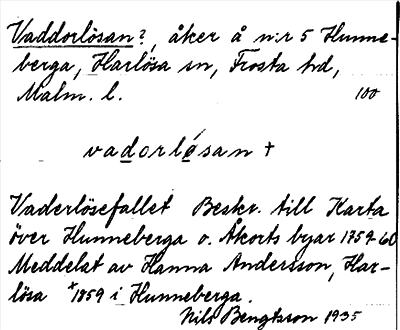 Vaddorlösan?, åker å n:r 5 Hunne-
berga, Harlösa sn, Frosta hd,
Malm. l. 100
vadorlo̱san +
Vaderlösefallet Beskr. till Karta
över Hunneberga o. Åkorts byar 1759-60
Meddelat av Hanna Andersson, Har-
lösa *1859 i Hunneberga.
Nils Bengtsson 1935